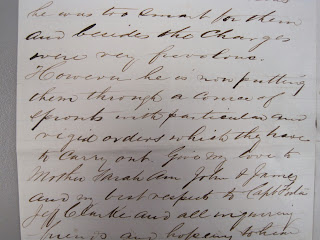 he was too smart for them
and besides the Charges
were very frivolous.
However he is now putting
them through a course of
sprouts with particular and
rigid orders which the have
to carry out Give my love to
Mother Sarah Ann John & James
and my best respect to Capt
Jef Clarke and all inquiring
friends and hoping to him